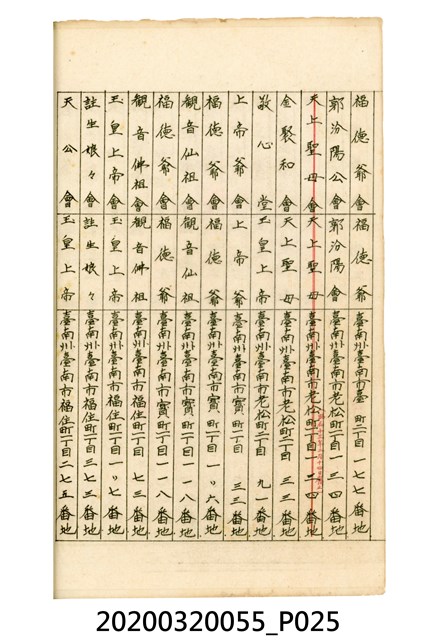 福德爺會 福德爺 臺南州臺南市臺町二丁目一七七番地
郭汾陽公會 郭汾陽會 臺南州臺南市老松町二丁目一三四番地
天上聖母會 天上聖母 臺南州臺南市老松町二丁目一二四番地
金聚和會 天上聖母 臺南州臺南市老松町二丁目三三番地
敬心堂 玉皇上帝 臺南州臺南市老松町二丁目九一番地
上帝爺會 上帝爺 臺南州臺南市寶町三三番地
福德爺會 福德爺 臺南州臺南市寶町一〃六番地
觀音仙祖會 觀音仙祖 臺南州臺南市寶町一一八番地
福德爺會 福德爺 臺南州臺南市寶町一一八番地
觀音佛祖會 觀音佛祖 臺南州臺南市福住町二丁目七三番地
玉皇上帝會 玉皇上帝 臺南州臺南市福住町二丁目一〃七番地
註生娘々會 註生娘々 臺南州臺南市福住町二丁目三七三番地
天公會 玉皇上帝 臺南州臺南市福住町二丁目二七五番地
20200320055_P025